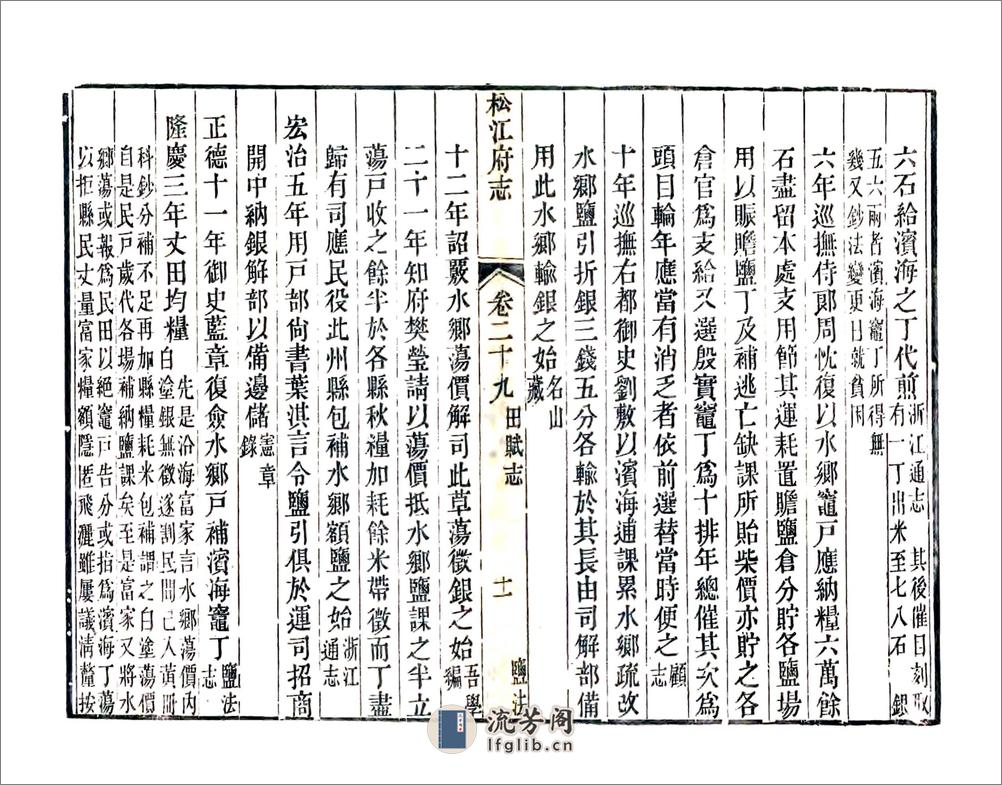 六石給濱海之丁代煎
浙江通志　其後催目刻取
有一丁出米至七八石　銀
五六兩者濱海竈丁所得無
幾又鈔法變更日就貧困
六年巡撫侍郎周忱復以水鄉竈戶應納糧六萬餘
石盡留本處支用節其運耗置贍鹽倉分貯各鹽場
用以賑贍鹽丁及補逃亡缺課所貽柴價亦貯之各
倉官爲支給又選殷實竈丁爲十排年總催其次爲
頭目輪年應當有消乏者依前選替當時便之顧志
十年巡撫右都御史劉敷以濱海逋課累水鄉疏改
水鄉鹽引折銀三錢五分各輸於其長由司解部備
用此水鄉輸銀之始名山藏
松江府志　卷二十九　田賦志　十一　鹽法
十二年詔嚴水鄉蕩價解司此草蕩徵銀之始吾學編
二十一年知府樊瑩請以蕩價抵水鄉鹽課之半立
蕩戶收之餘半於各縣秋糧加耗餘米帶徵而丁盡
歸有司應民役此州縣包補水鄉額鹽之始浙江通志
宏治五年用戶部尚書葉淇言令鹽引俱於運司招商
開中納銀解部以備邊儲憲章錄
正德十一年御史藍章復僉水鄉戶補濱海竈丁鹽法志
隆慶三年丈田均糧
先是沿海富家言水鄉蕩價內
白塗銀無徵遂割民間已入黃冊
科鈔分補不足再加縣糧耗米包補謂之白塗蕩價
自是民戶歲代各場補納鹽課矣至是富家又將水
鄉蕩或報爲民田以絕竈戶告分或指爲濱海丁蕩
以拒縣民丈量富家糧額隱匿飛灑雖屢議清釐按
流芳阁
lfglib.cn